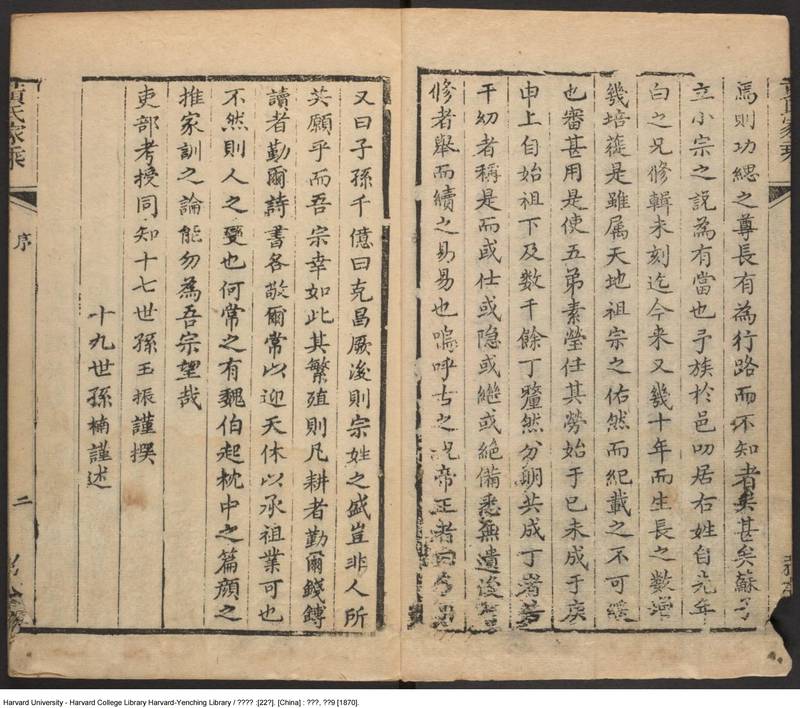 焉則功緦之尊長有為行路而不知者矣甚矣蘇子
立小宗之說為有當也予族於邑叨居右姓自先年
白之兄修輯未刻迄今来又幾十年而生長之數增
幾培蓰是雖属天地祖宗之佑然而紀載之不可緩
也審甚用是使五弟素瑩任其勞始于巳未成于庚
申上自始祖下及数千餘丁釐然分明共成丁者若
干幼者稱是而或仕或隐或繼或絶備悉無遺後
修者舉而續之易易也嗚呼古之祝帝王者曰多男
又曰子孫千億曰克昌厥後則宗姓之盛豈非人所
英願乎而吾宗幸如此其繁殖則凡耕者勤爾錢鎛
讀者勤爾詩書各敬爾常以迎天休以承祖業可也
不然則人之㪅也何常之有魏伯起枕中之篇顔之
推家訓之論能勿為吾宗望哉
吏部考授同知十七世孫玉振謹撰
十九世孫楠謹述
黃氏家乘
序
二
Harvard University - Harvard College Library Harvard-Yenching Library / ???? :[22?]. [China] : ???, ??9 [1870].